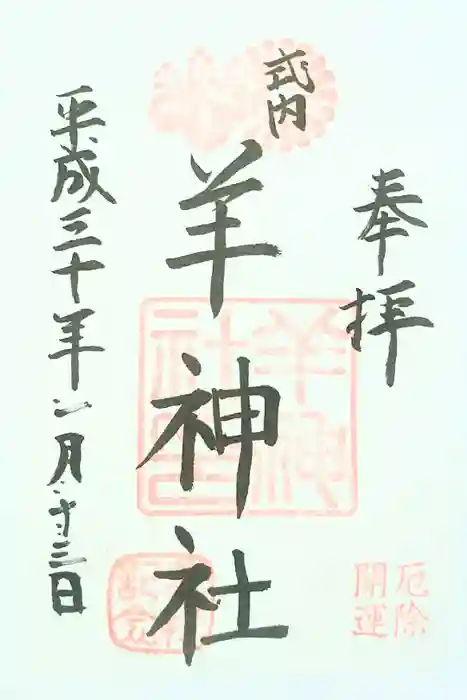 奉拝
式内
羊神社
平成三十年一月十三日
羊神社
厄除
開運